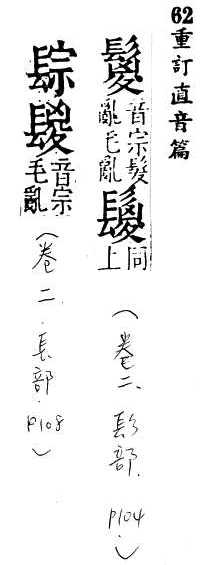 62重訂直音篇
鬉音宗髮亂毛亂 同上
(卷二、髟部.P104.)
音宗毛亂
(卷二.長部.P108)